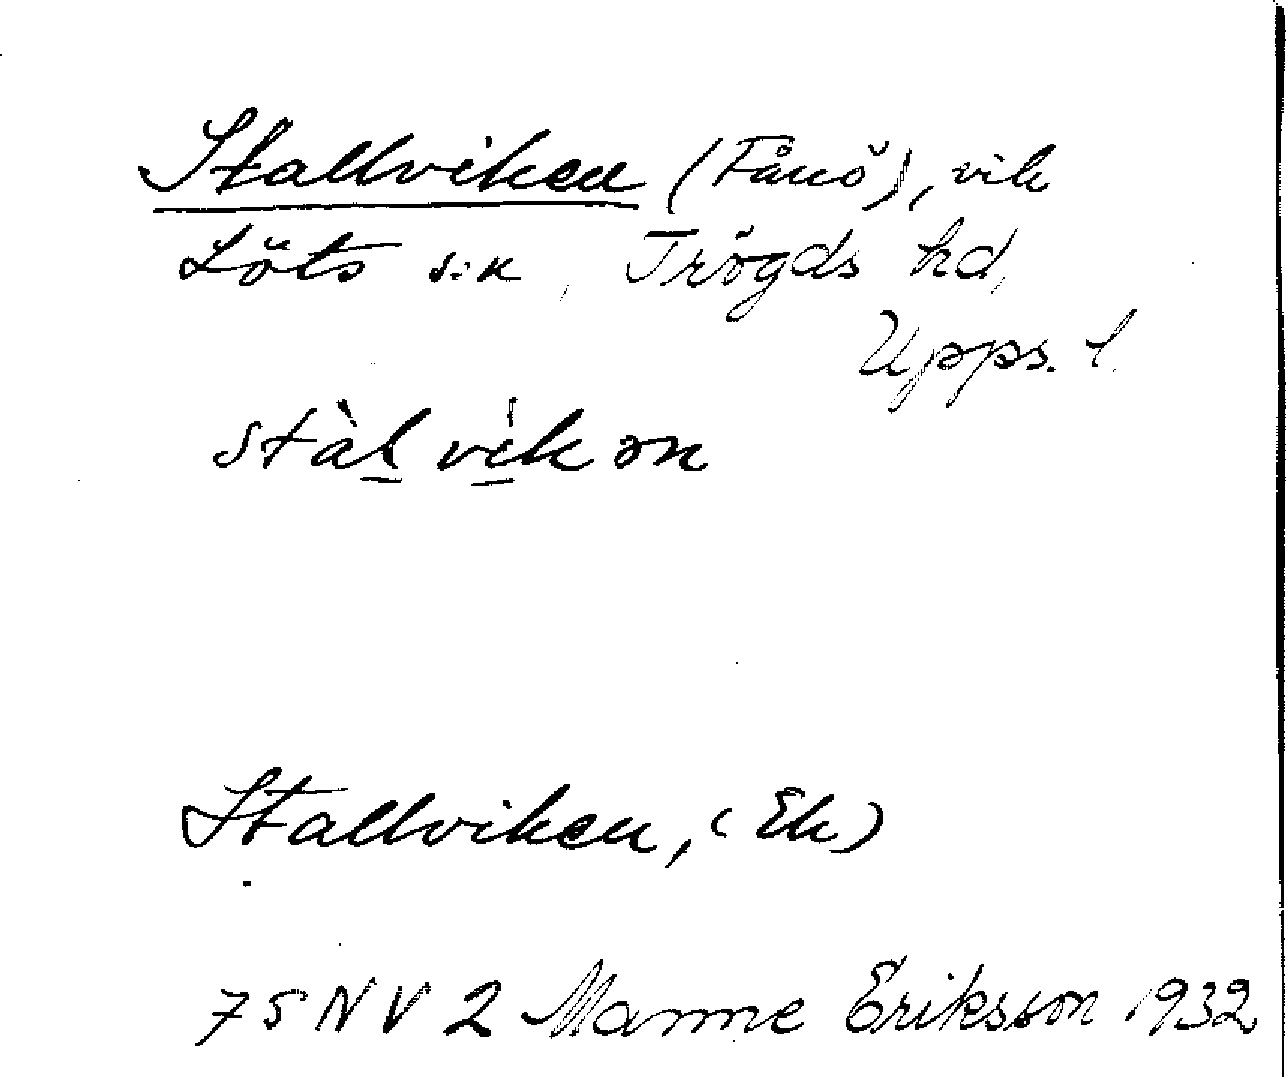 Stallviken (Fånö), vik
Löts s:n, Trögds hd,
Upps. l.
stàl vík ən
Stallviken, (Ek)
75 NV 2 Manne Eriksson 1932